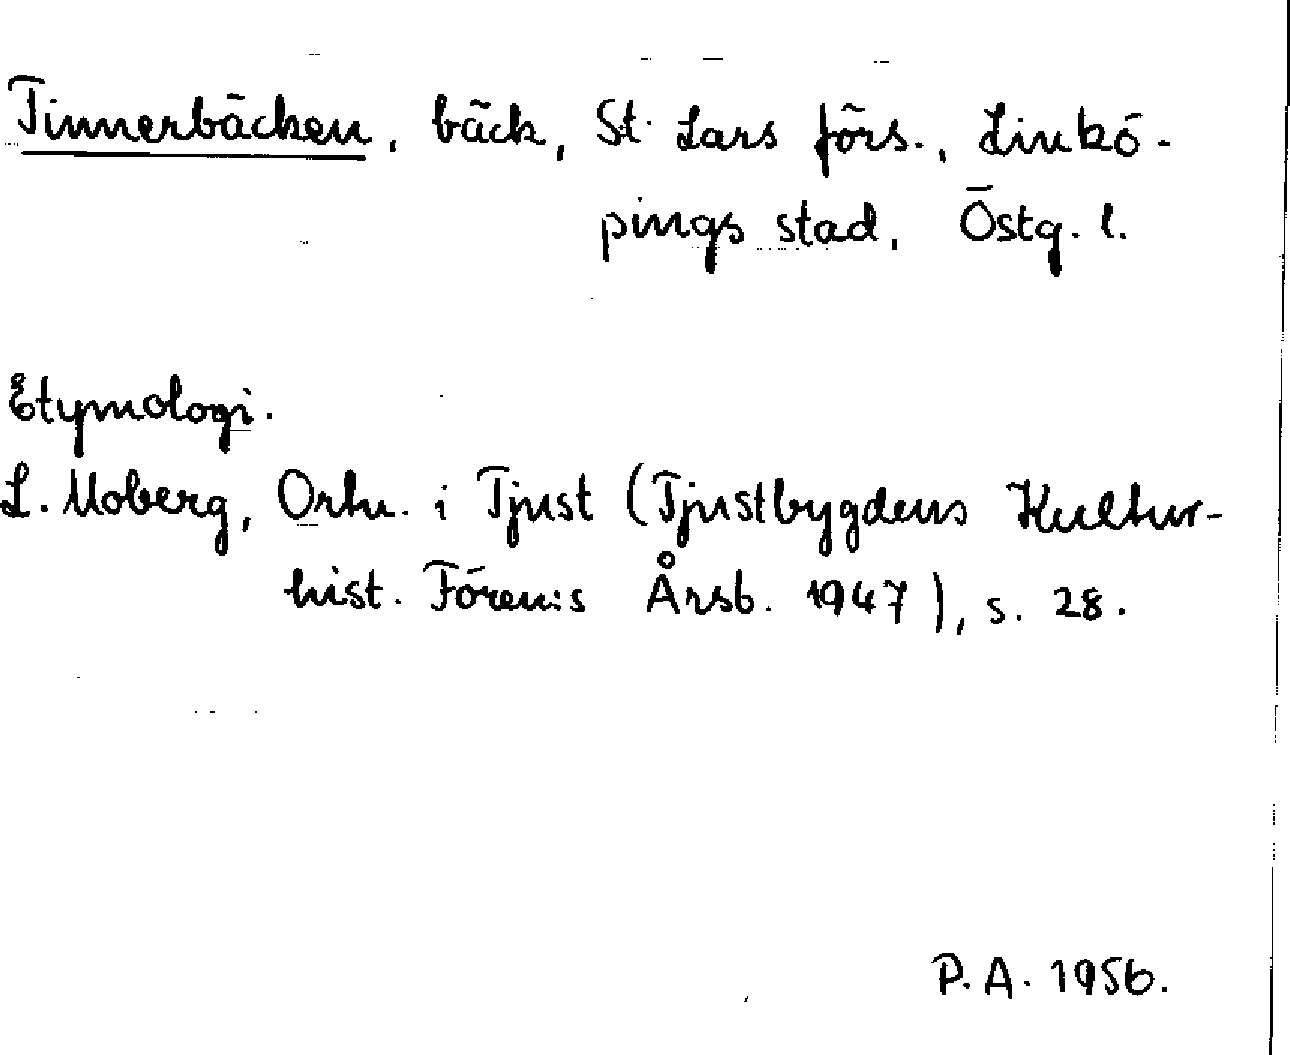 Tinnerbäcken, bäck, St. Lars förs., Linkö-
pings stad, Östg. l.
Etymologi.
L. Moberg, Ortn. i Tjust (Tjustbygdens Kultur-
hist. Fören:s Årsb. 1947), s. 28.
P. A. 1956.